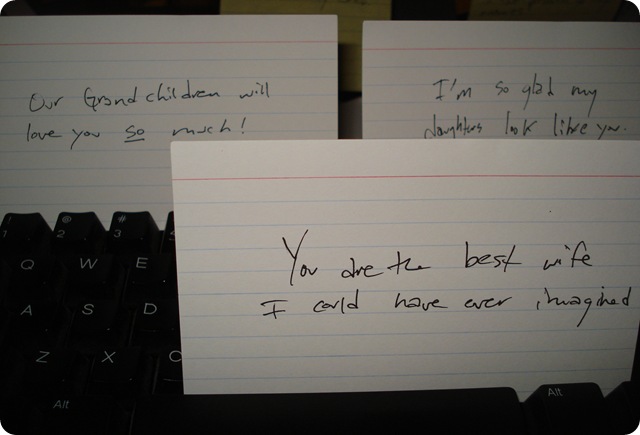 Our Grandchildren will
love you so much!
I'm so glad my
daughters look like you.
You are the best wife
I could have ever imagined
1
@
2
#
3
Q W E
A S D
Z X C
Alt
Alt